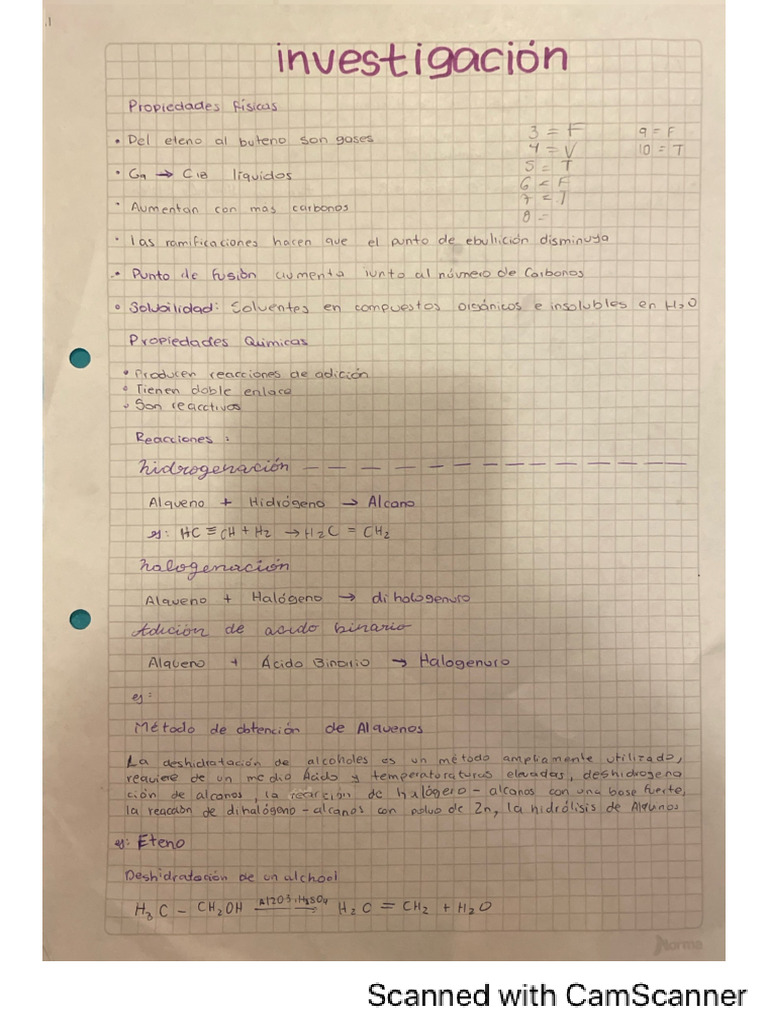 .1
investigación
Propiedades físicas
• Del eteno al buteno son gases
3 = F
9 = F
4 = V
10 = T
• → C18 líquidos
5 = T
6 = F
• Aumentan con mas carbonos
7 =
8 =
• las ramificaciones hacen que el punto de ebullición disminuya
• Punto de fusión aumenta junto al número de Carbonos
• Solubilidad: Solventes en compuestos orgánicos e insolubles en H2O
Propiedades Químicas
• Producen reacciones de adición
• Tienen doble enlace
• Son reacctivos
Reacciones :
hidrogenación — — — — — — — — — — — — —
Alqueno + Hidrógeno → Alcano
ej: HC ≡ CH + H2 → H2C = CH2
halogenación
Alqueno + Halógeno → di halogenuro
Adición de acido binario
Alqueno + Ácido Binario → Halogenuro
ej:
Método de obtención de Alquenos
La deshidratación de alcoholes es un método ampliamente utilizado,
requiere de un medio Ácido y temperatoraturas elevadas, deshidrogena
ción de alcanos, la reacción de halógero - alcanos con una base fuerte,
la reacción de dihalógeno - alcanos con polvo de Zn, la hidrólisis de Alqunos
ej: Eteno
Deshidratación de un alchool
H3C - CH2OH Al2O3, H2SO4 H2C = CH2 + H2O
Norma
Scanned with CamScanner